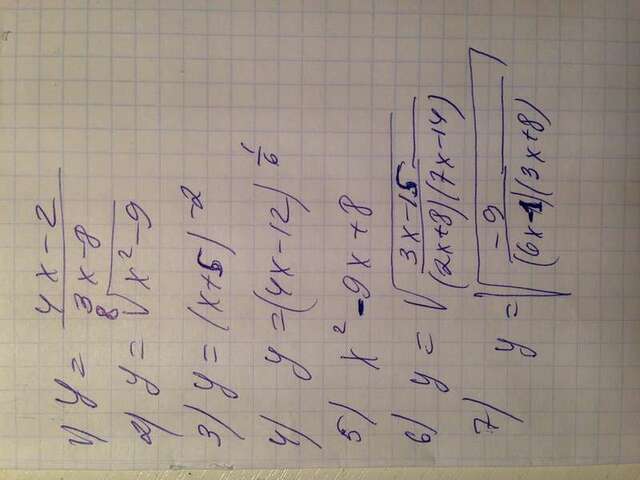 1) y = \frac{4x-2}{3x-8}
2) y = \sqrt[8]{x^2-9}
3) y = (x+5)^{-2}
4) y = (4x-12)^{\frac{1}{6}}
5) x^2-9x+8
6) y = \sqrt{\frac{3x-15}{(2x+8)(7x-14)}}
7) y = \sqrt{\frac{-9}{(6x-1)(3x+8)}}